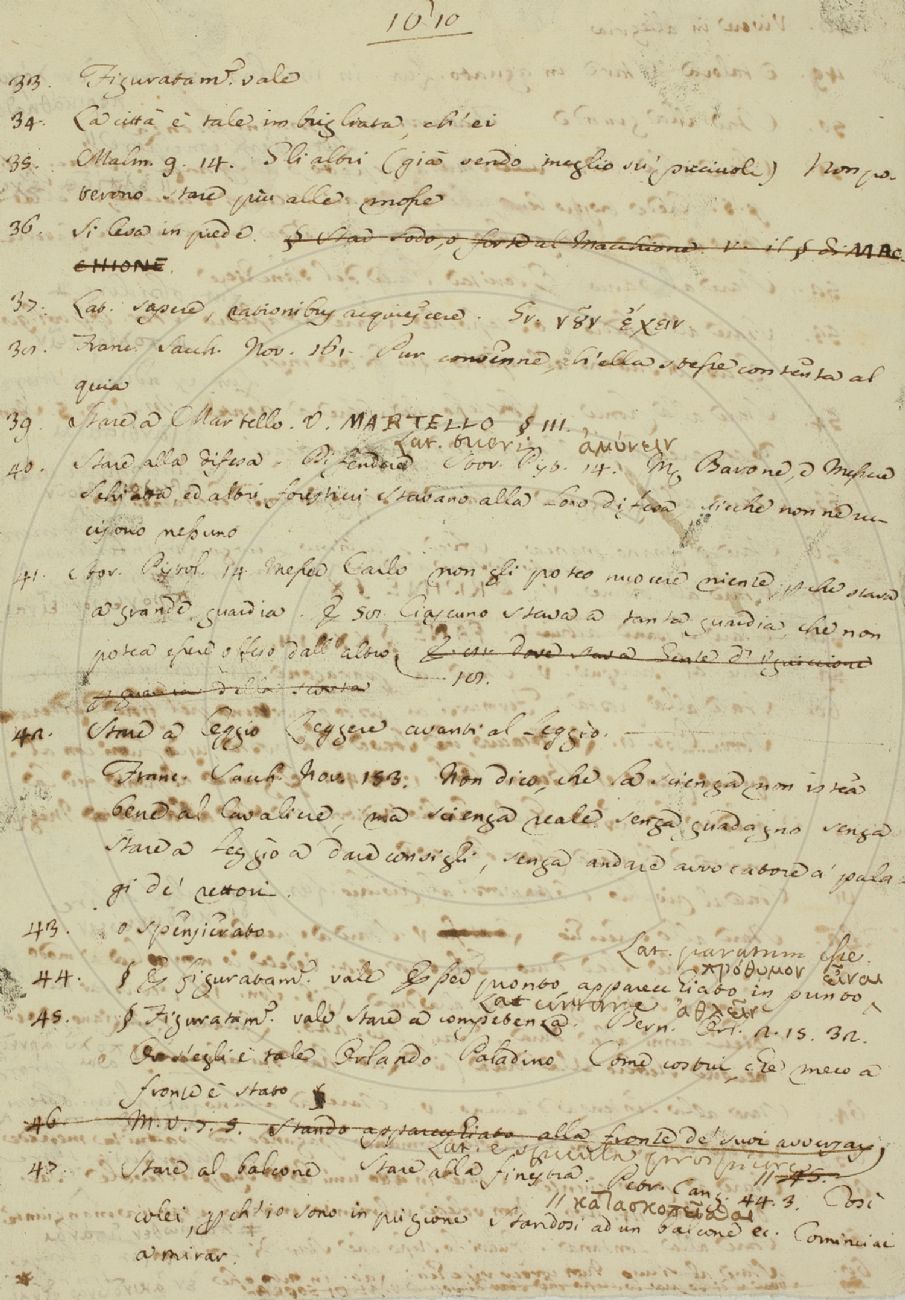 1010
33. Figuratam.e vale
34. La città è tale imbrigliata, ch'ei
35. Malm. 9. 14. Gli altri (già sendo meglio su' picciuoli) Non po-
terono stare più alle mosse
36. Si leva in piede. § Star sodo, o, forte al Macchione. v. il § di MAC-
CHIONE.
37. Lat. sapere, rationibus acquiescere. Gr. νȣ̃ν ἔχειν
38. Franc. Sacch. Nov. 161. Pur convenne, ch'ella stesse contenta al
quia
39. Stare a Martello. V. MARTELLO § III.
Lat. tueri ἀμύνειν
40. Stare alla difesa. Difendere Stor. Pist. 14. M. Barone, e Messer
Schiatta, ed altri forestieri stavano alla loro difesa sicchè non ne uc-
cisono nessuno
41. Stor. Pistol. 14 Messer Carlo non gli poteo nuocere niente, pche stava
a grande guardia. E 50. Ciascuno stava a tanta guardia, che non
potea essere offeso dall'altro E dove stava Gente d'Uguccione
p guardia della
42. Stare a Leggio Leggere avanti al Leggio.
Franc. Sacch. Nov. 153. Non dico, che la scienza non istea
bene al Cavaliere, ma scienza reale senza guadagno senza
stare a Leggio a dare consigli, senza andare avvocatore a' pala-
gi de' rettori.
43. o spensierato
Lat. paratum
πρόθυμον εἶναι
44. § E figuratam.e vale Esser pronto, apparecchiato in punto
Lat. ἀθλεῖν
45. § Figuratam.e vale Stare a competenza. Bern. Orl. 2. 15. 32.
Or s'egli è tale Orlando Paladino Come costui, che meco a
fronte è stato §
46. M. V. 7. 5. Stando apparecchiato alla fronte de' suoi avversarj
Lat. e specula prospicere
47. Stare al balcone Stare alla finestra. Petr. Canz. 44. 3. Così
κατασκοπεῖσθαι
colei, pch'io sono in prigione Standosi ad un balcone ec. Cominciai
a mirar.